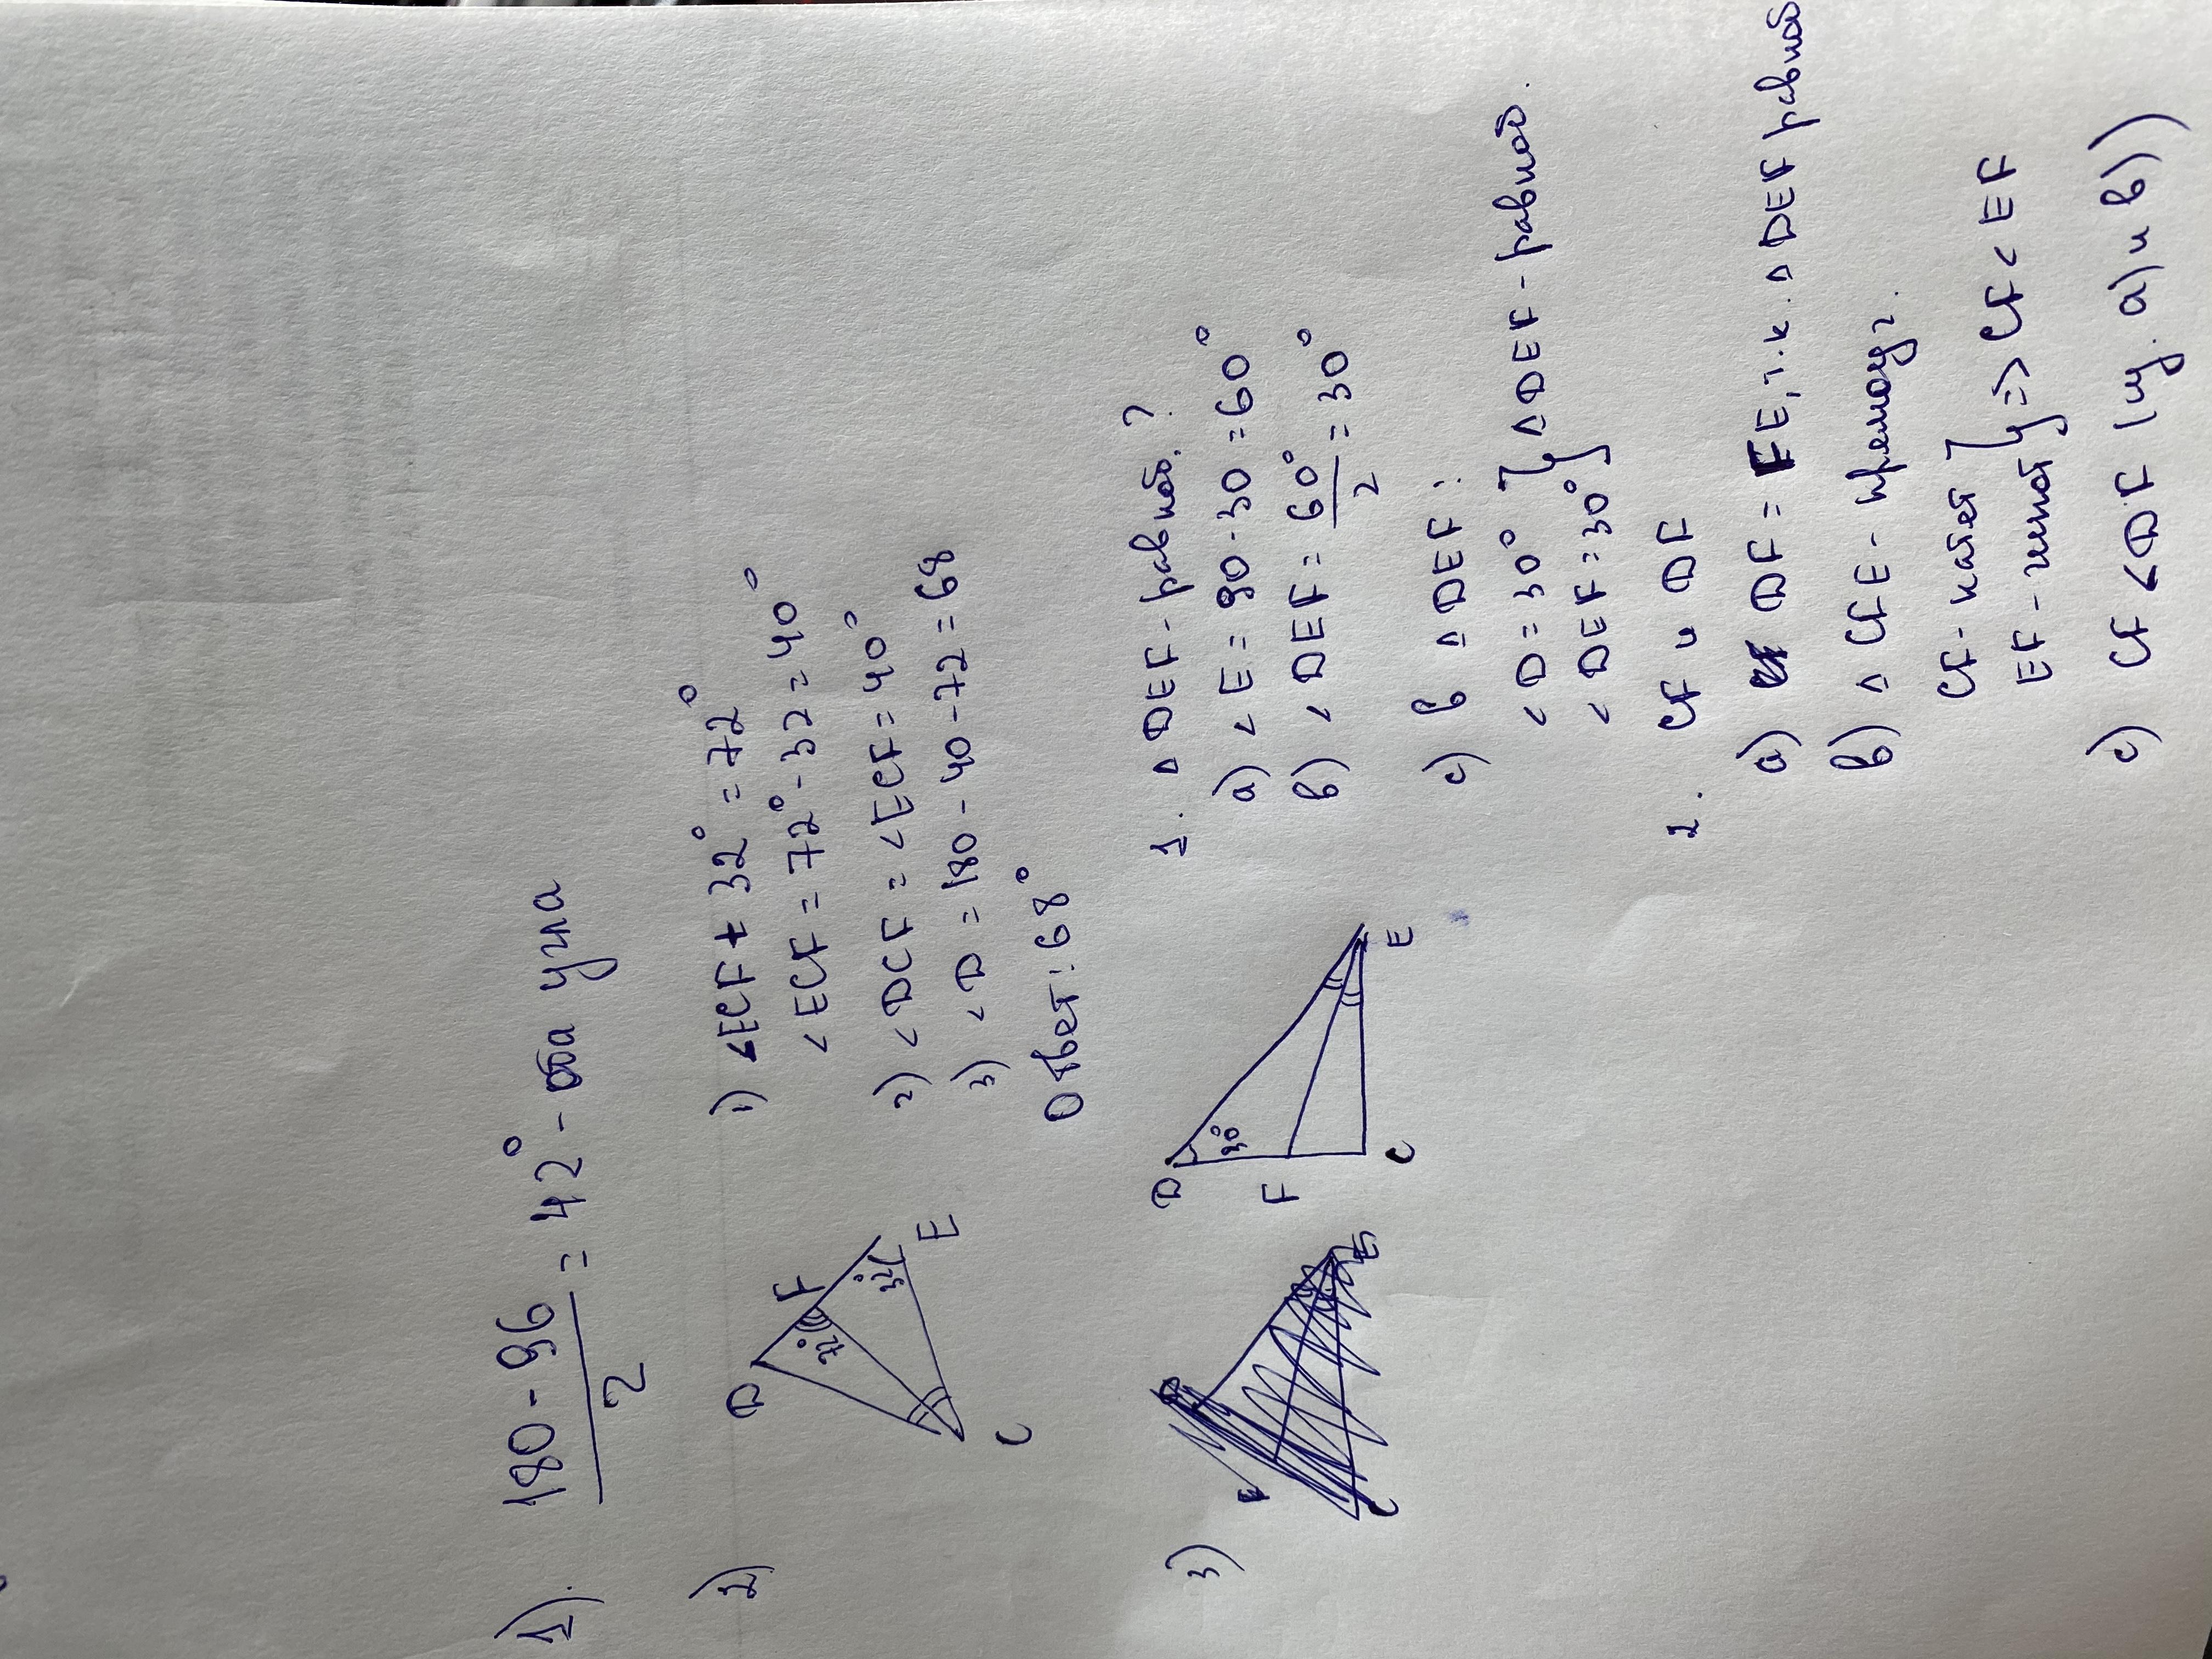 1). 180 - 96 / 2 = 42° - оба угла
2)
D
F
72°
32°
E
C
1) ∠ECF + 32° = 72°
∠ECF = 72° - 32 = 40°
2) ∠DCF = ∠ECF = 40°
3) ∠D = 180 - 40 - 72 = 68
Ответ: 68°
3)
D
30°
F
C
E
1. △DEF - равноб. ?
a) ∠E = 90 - 30 = 60°
b) ∠DEF = 60° / 2 = 30°
c) В △DEF :
∠D = 30°
∠DEF = 30° } △DEF - равноб.
2. CF и DF
a) DF = FE, т.к. △DEF равноб
b) △CFE - прямоуг.
CF - катет
EF - гипот } => CF < EF
c) CF < DF (из. a) и b))